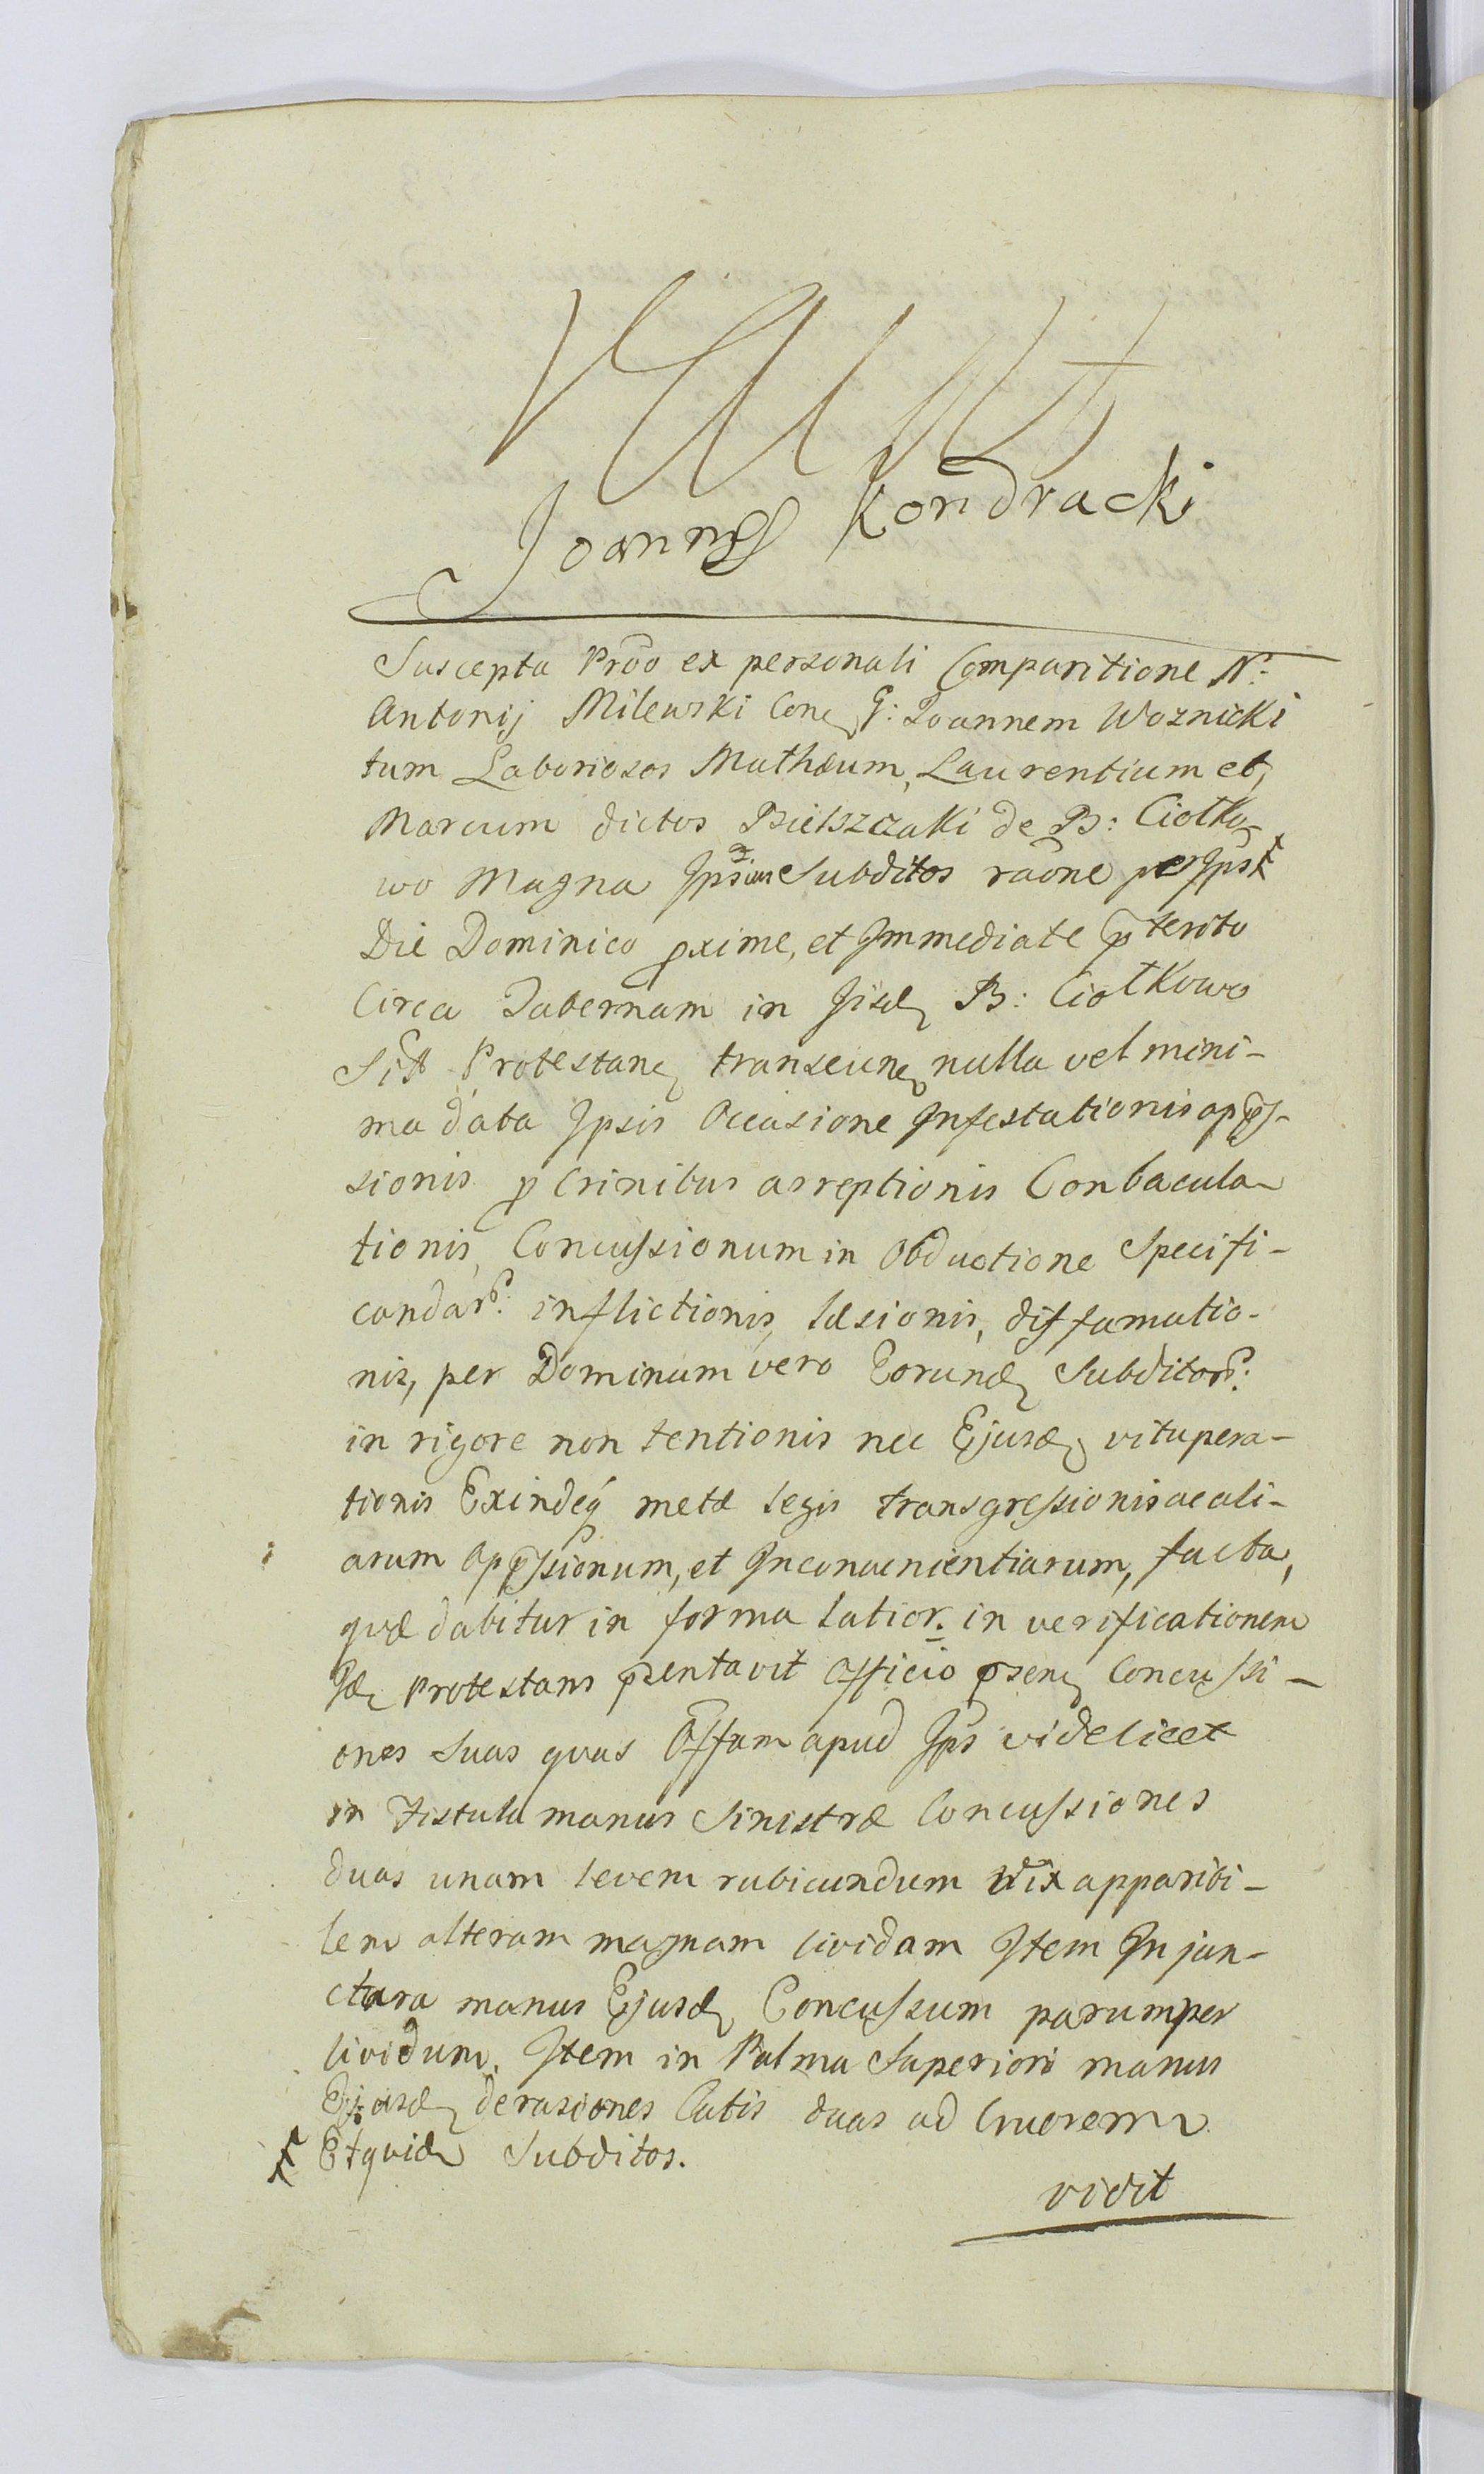 Joannes Kondracki
Suscepta Prõo ex personali Comparitione N:
Antonij Milewski Con G: Joannem Woznicki
tum Laboriosos Mathæum, Laurentium et
Marcum dictos Bielszczaki de B: Ciołko-
wo Magna Ipsius Subditos raõne per Ips
Die Dominico pxime, et Immediate p̃terito
Circa Tabernam in Iisd B: Ciołkowo
Sit̃ Protestan transeun nulla vel mini-
ma data Ipsis Occasione Infestationis app̃s-
sionis p Crinibus arreptionis Conbacula-
tionis, Concussionum in Obductione Specifi-
candar: inflictionis, læsionis, diffamatio-
nis, per Dominum vero Eorund Subditor:
in rigore non tentionis nec Ejusd vitupera-
tionis Exindeq metæ legis transgressionis ac ali-
arum Opp̃ssionum, et Inconvenientiarum, facta,
quæ dabitur in forma latior. in verificationem
Id Protestans p̃sentavit Officio p̃sen Concussi-
ones Suas quas Offam apud Ips videlicet
in Fistula manus Sinistræ Concussiones
duas unam levem rubicundum vix apparibi-
lem alteram magnam lividam Item In jun-
ctura manus Ejusd Concussum parumper
lividum. Item in Palma Superiori manus
Ejusd derasiones Cutis duas ad Cruorem
Et quid Subditos.
vidit